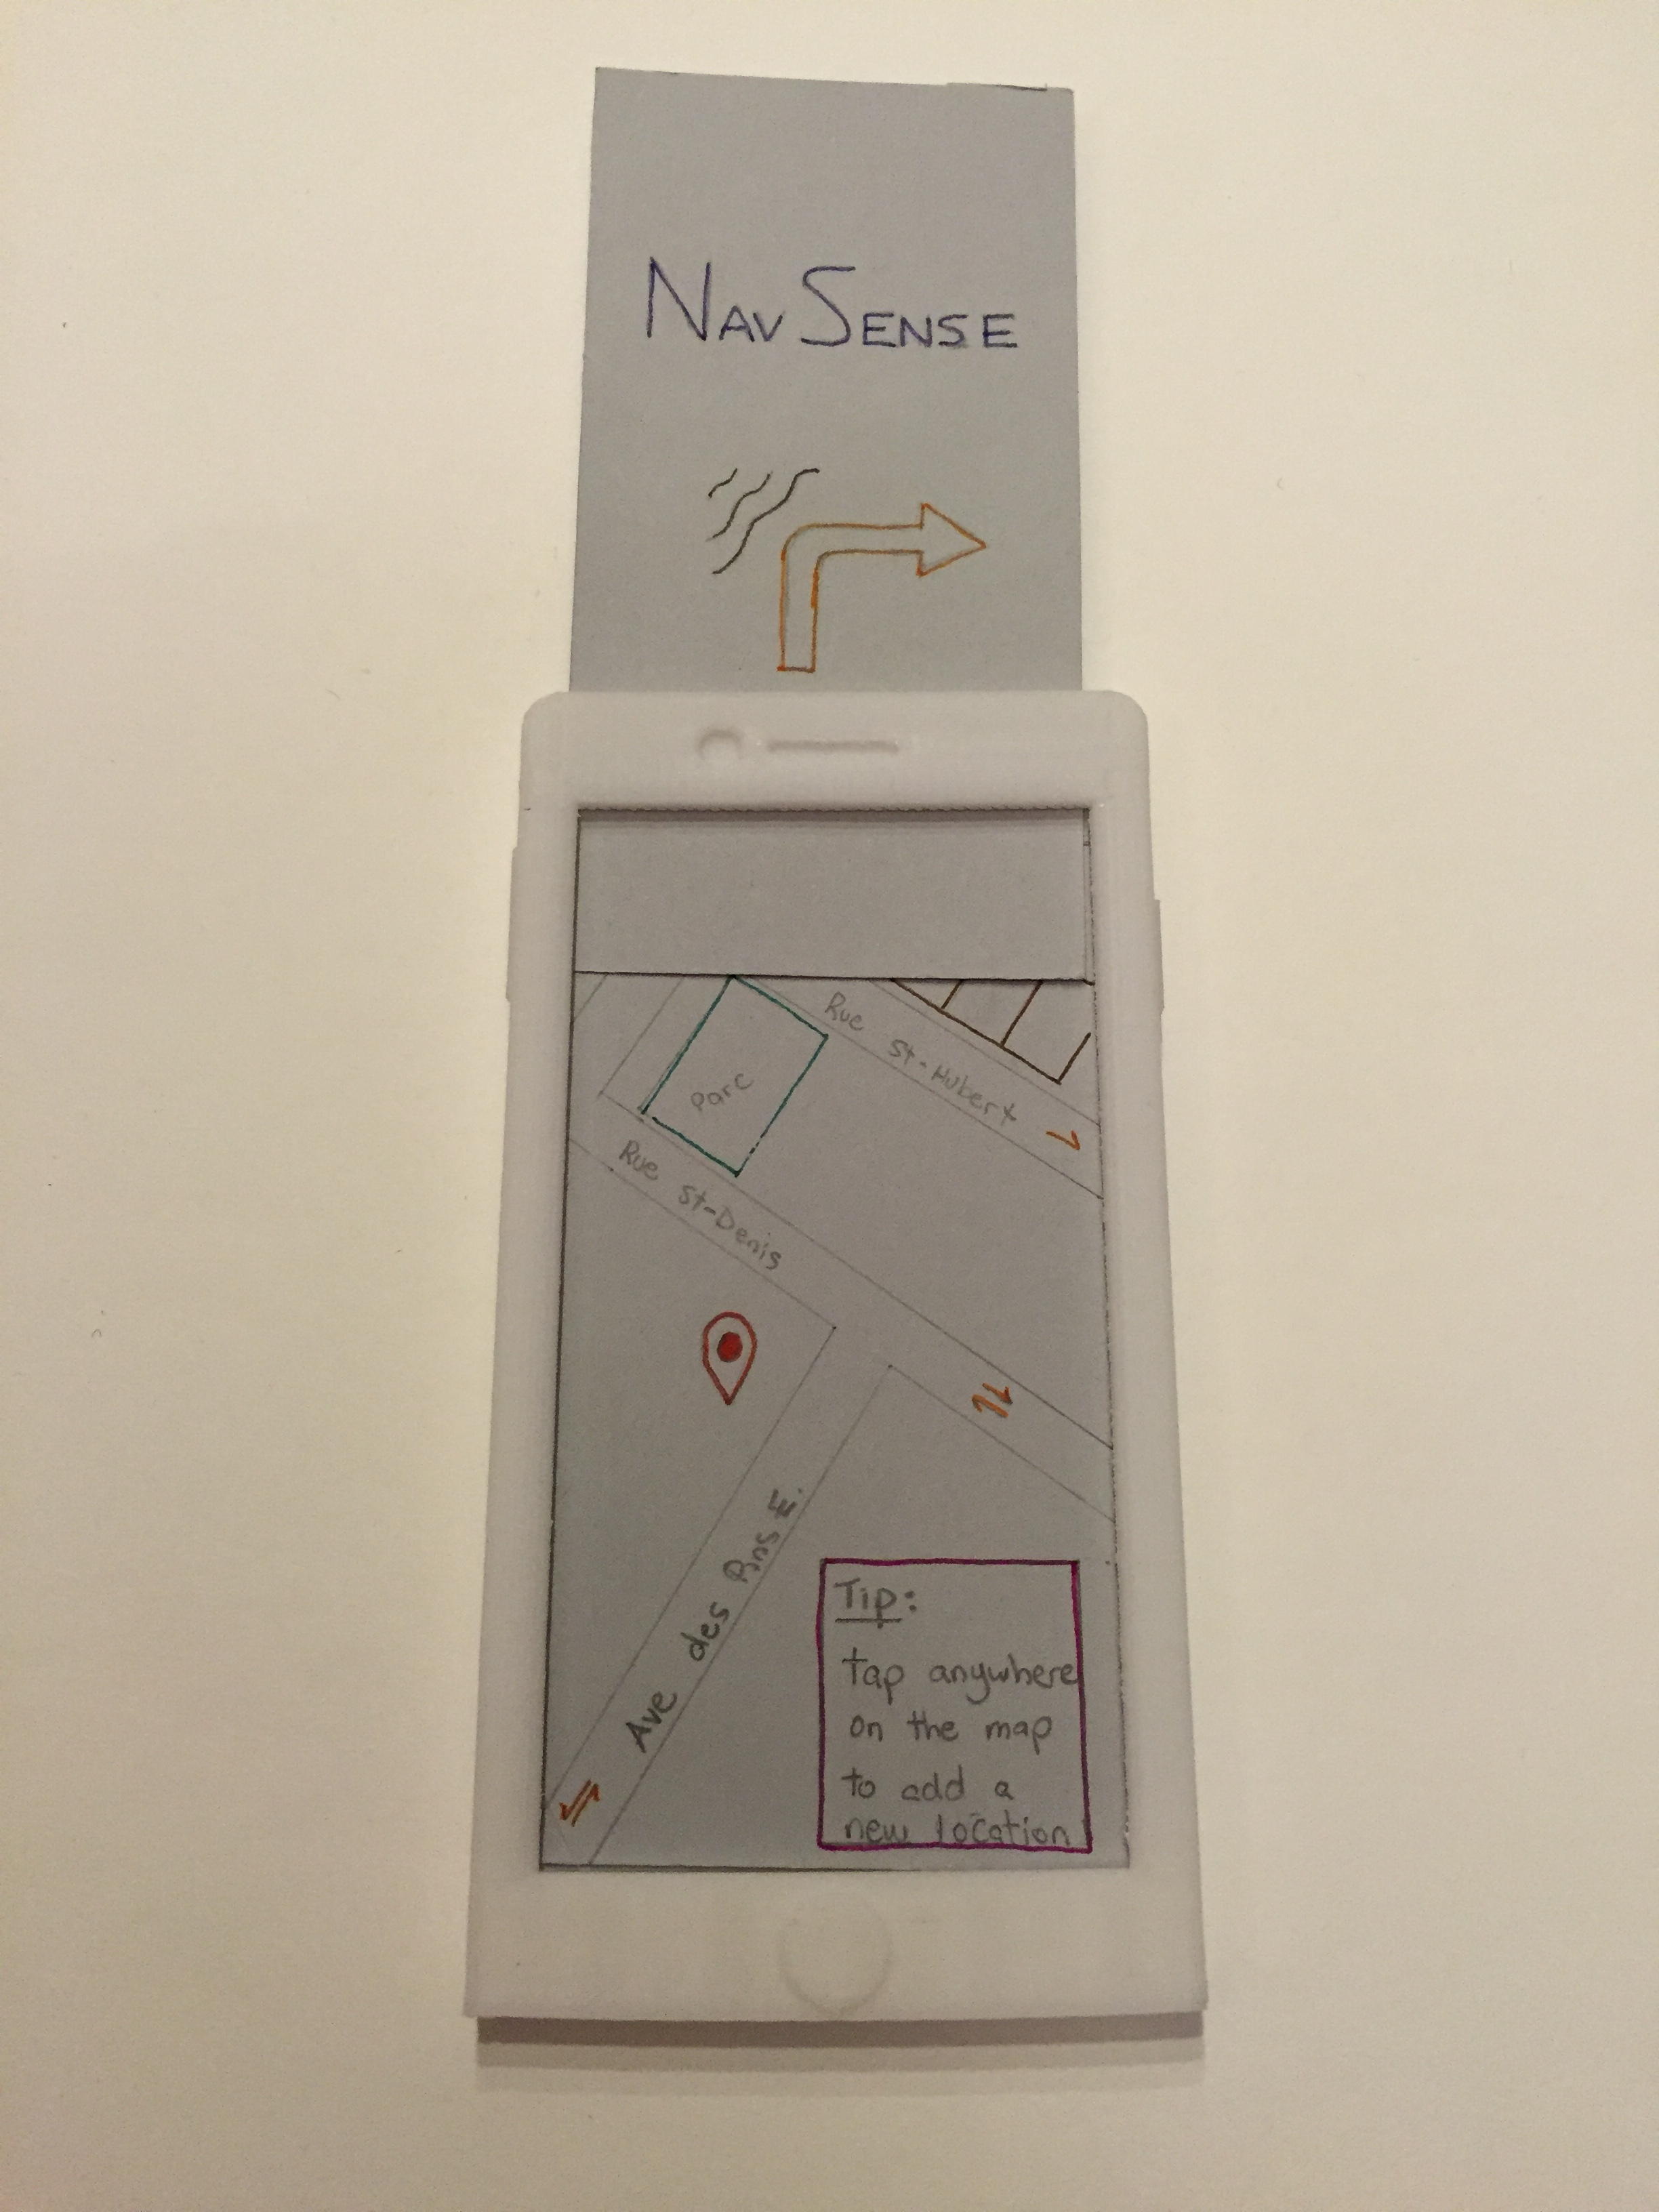 NAV SENSE
Rue St-Hubert
Parc
Rue St-Denis
Ave des Pins E.
Tip:
tap anywhere
on the map
to add a
new location